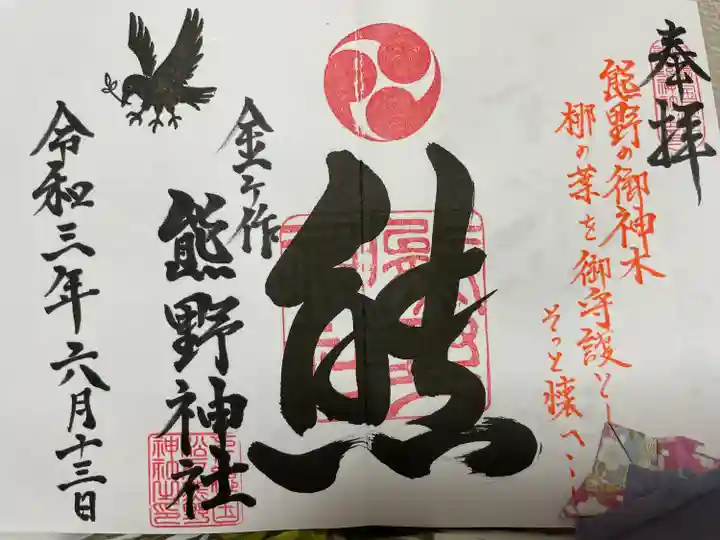 奉拝
熊野の御神木
梛の葉を御守護とし
そっと懐へ…
熊
金ケ作
熊野神社
令和三年六月十三日